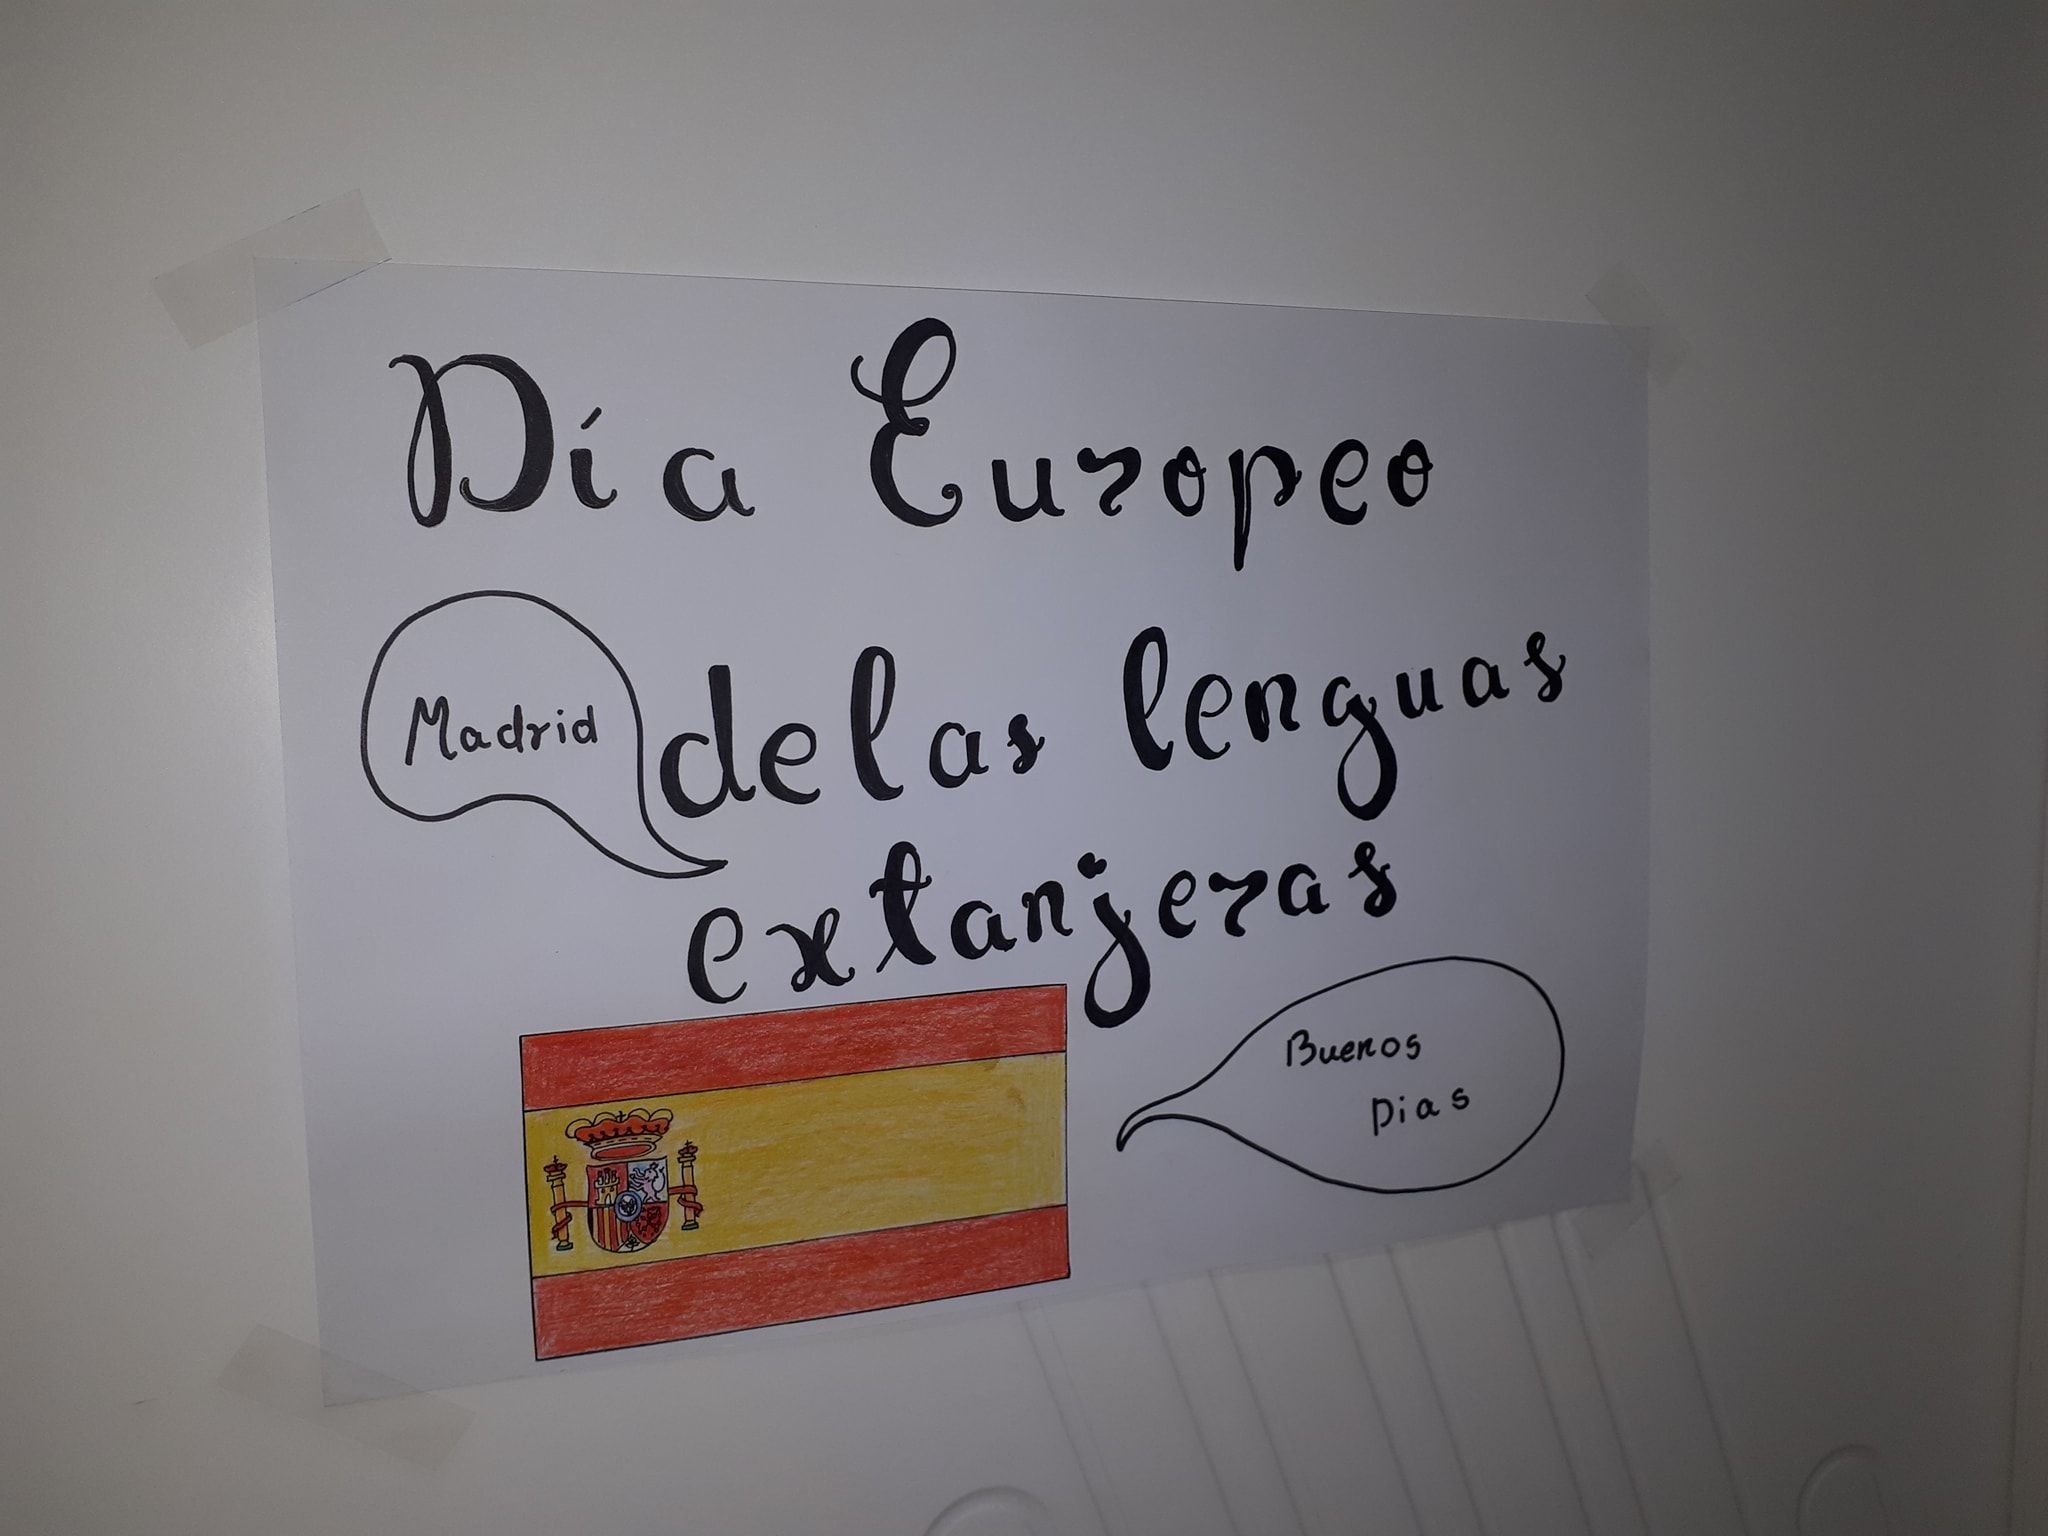 Día Europeo
Madrid
de las lenguas
extanjeras
Buenos
Dias